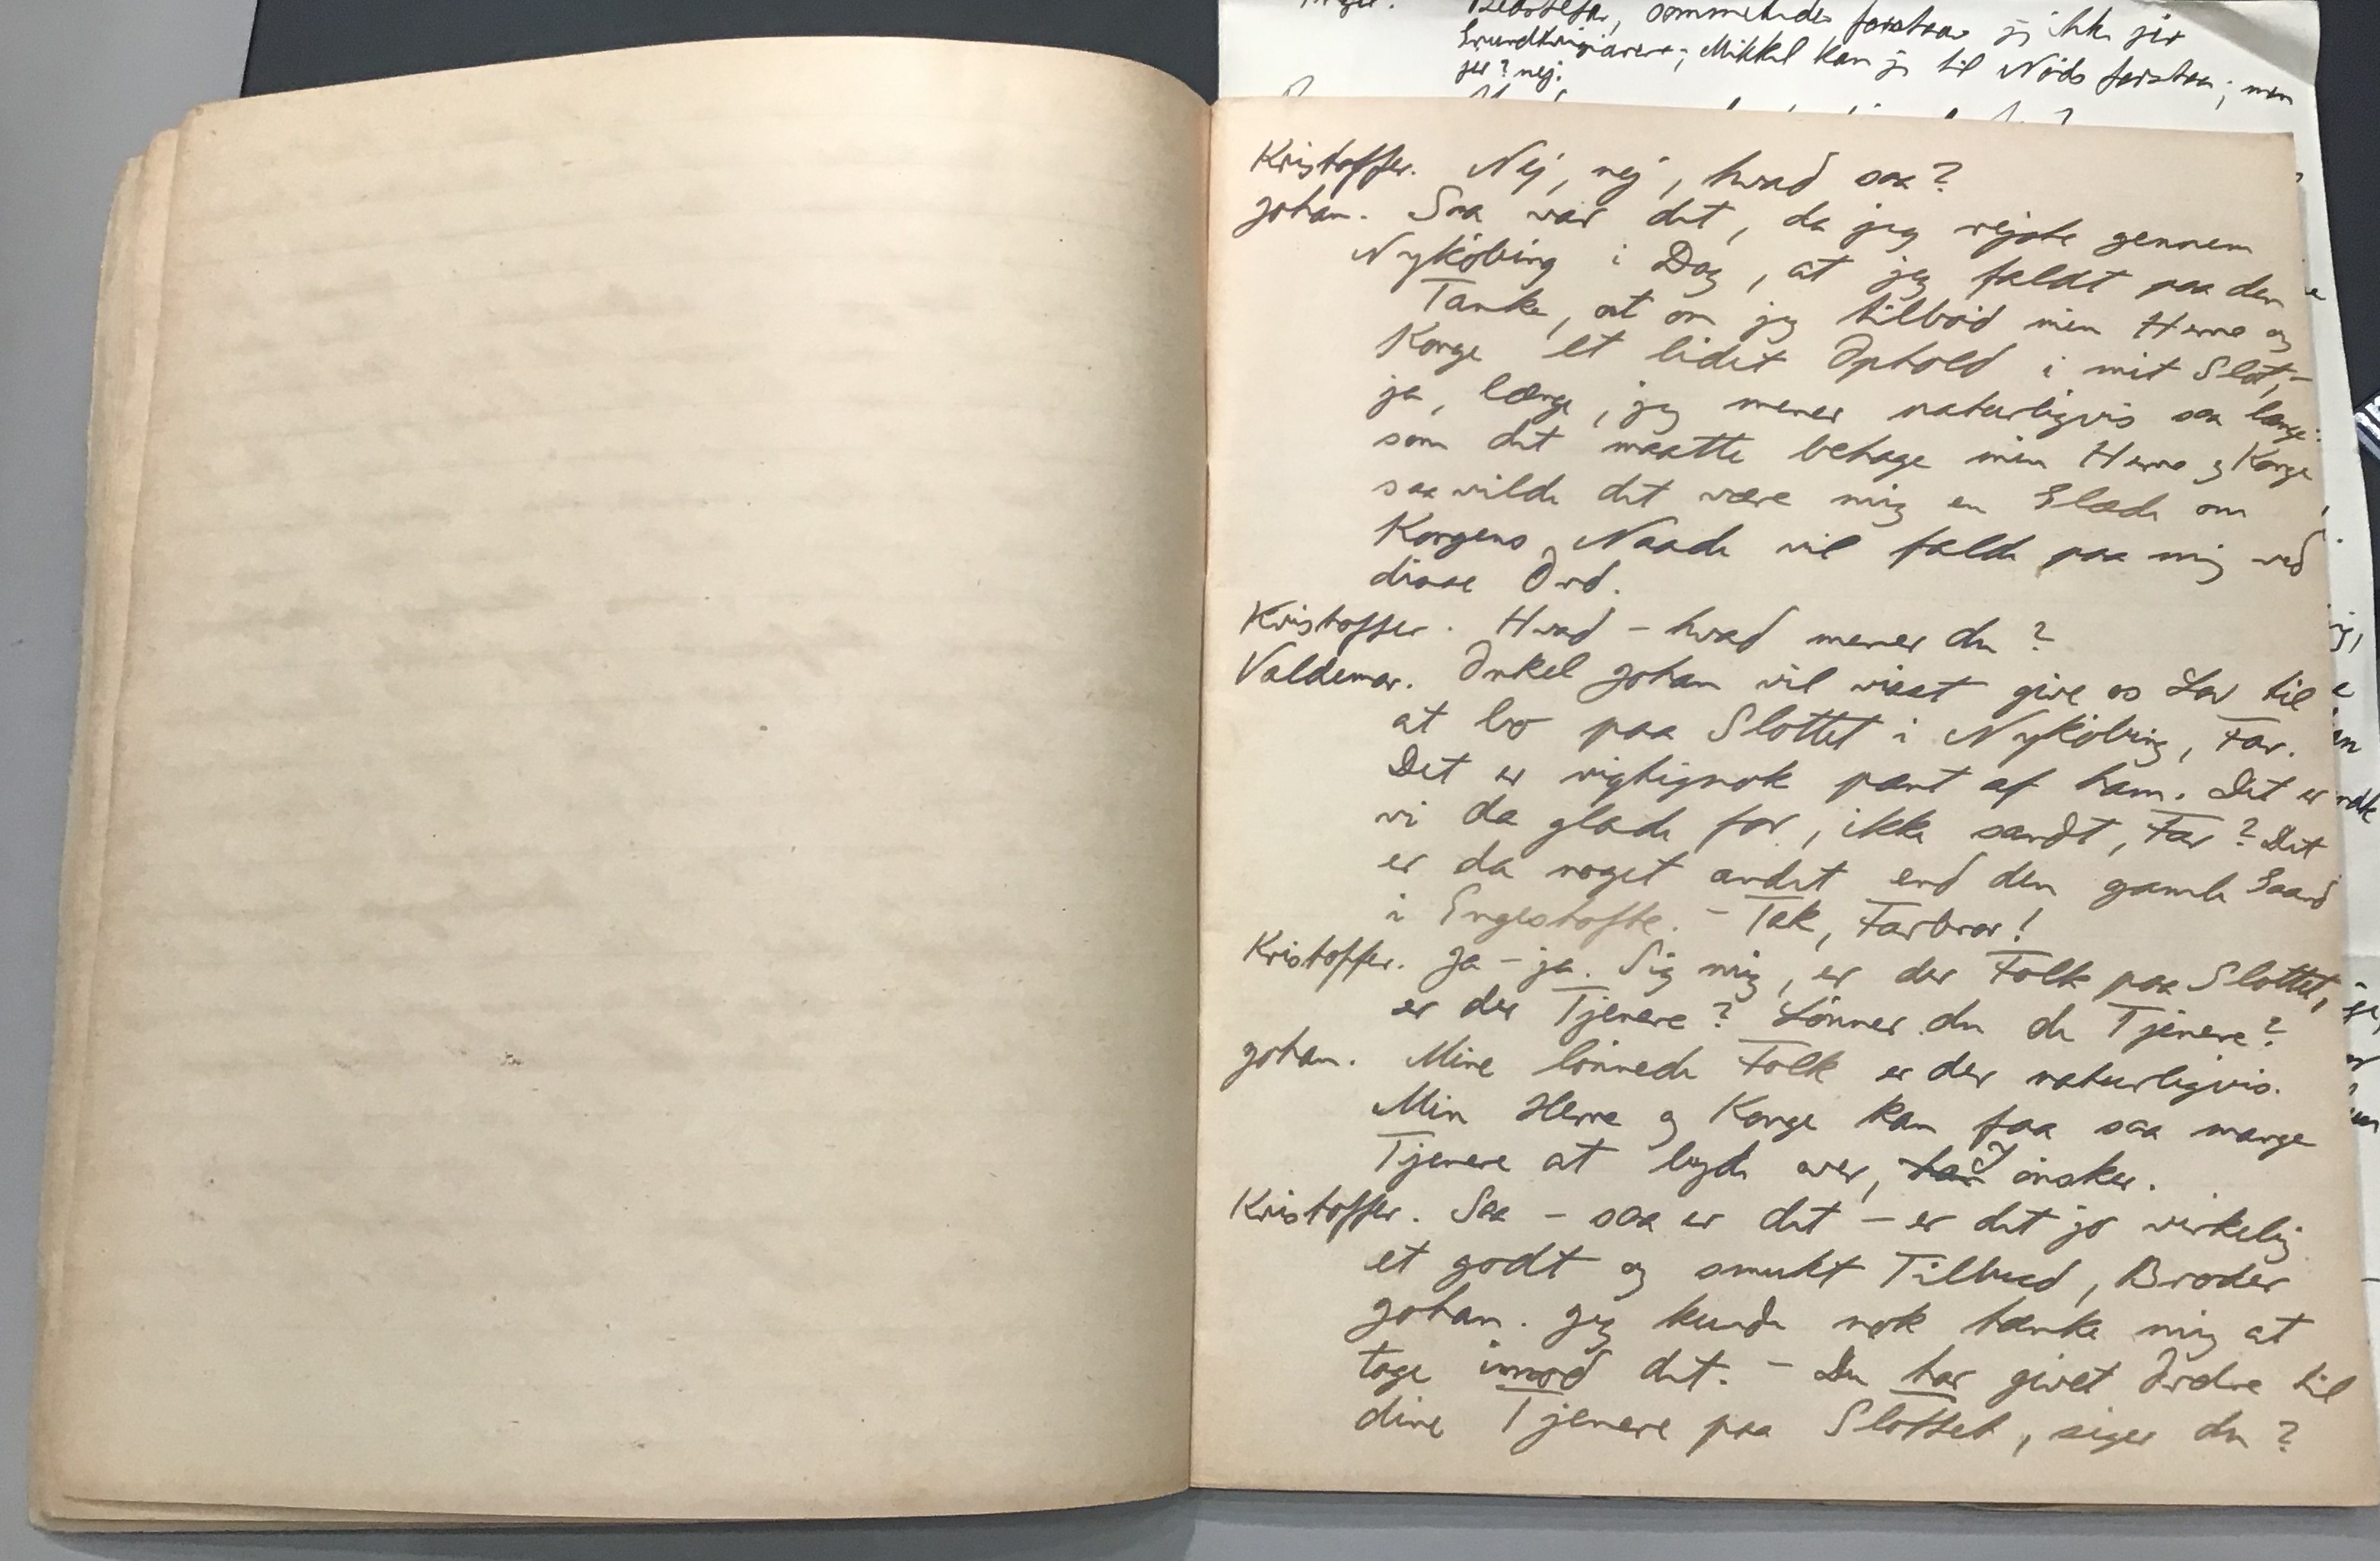 Bedstefar, sommetider forstaar jeg ikke jer
Grundtvigianere; Mikkel kan jeg til Nöds forstaa; men
jer? nej.
Kristoffer. Nej, nej, hvad saa?
Johan. Saa var det, da jeg rejste gennem
Nyköbing i Dag, at jeg faldt paa den
Tanke, at om jeg tilböd min Herre og
Konge et lidet Ophold i mit Slot, –
ja, længe, jeg mener naturligvis saa længe
som det maatte behage min Herre og Konge
saa vilde det være mig en Glæde om
Kongens Naade vil falde paa mig ved
disse Ord.
Kristoffer. Hvad – hvad mener du?
Valdemar. Onkel Johan vil visst give os Lov til
at bo paa Slottet i Nyköbing, Far.
Det er rigtignok pænt af ham. Det er
vi da glade for, ikke sandt, Far? Det
er da noget andet end den gamle Gaard
i Engestofte. – Tak, Farbror!
Kristoffer. Ja – ja. Sig mig, er der Folk paa Slottet,
er der Tjenere? Lönner du de Tjenere?
Johan. Mine lönnede Folk er der naturligvis.
Min Herre og Konge kan faa saa mange
Tjenere at byde over, han I önsker.
Kristoffer. Saa – saa er det – er det jo virkelig
et godt og smukt Tilbud, Broder
Johan. Jeg kunde nok tænke mig at
tage imod det. – Du har givet Ordre til
dine Tjenere paa Slottet, siger du?